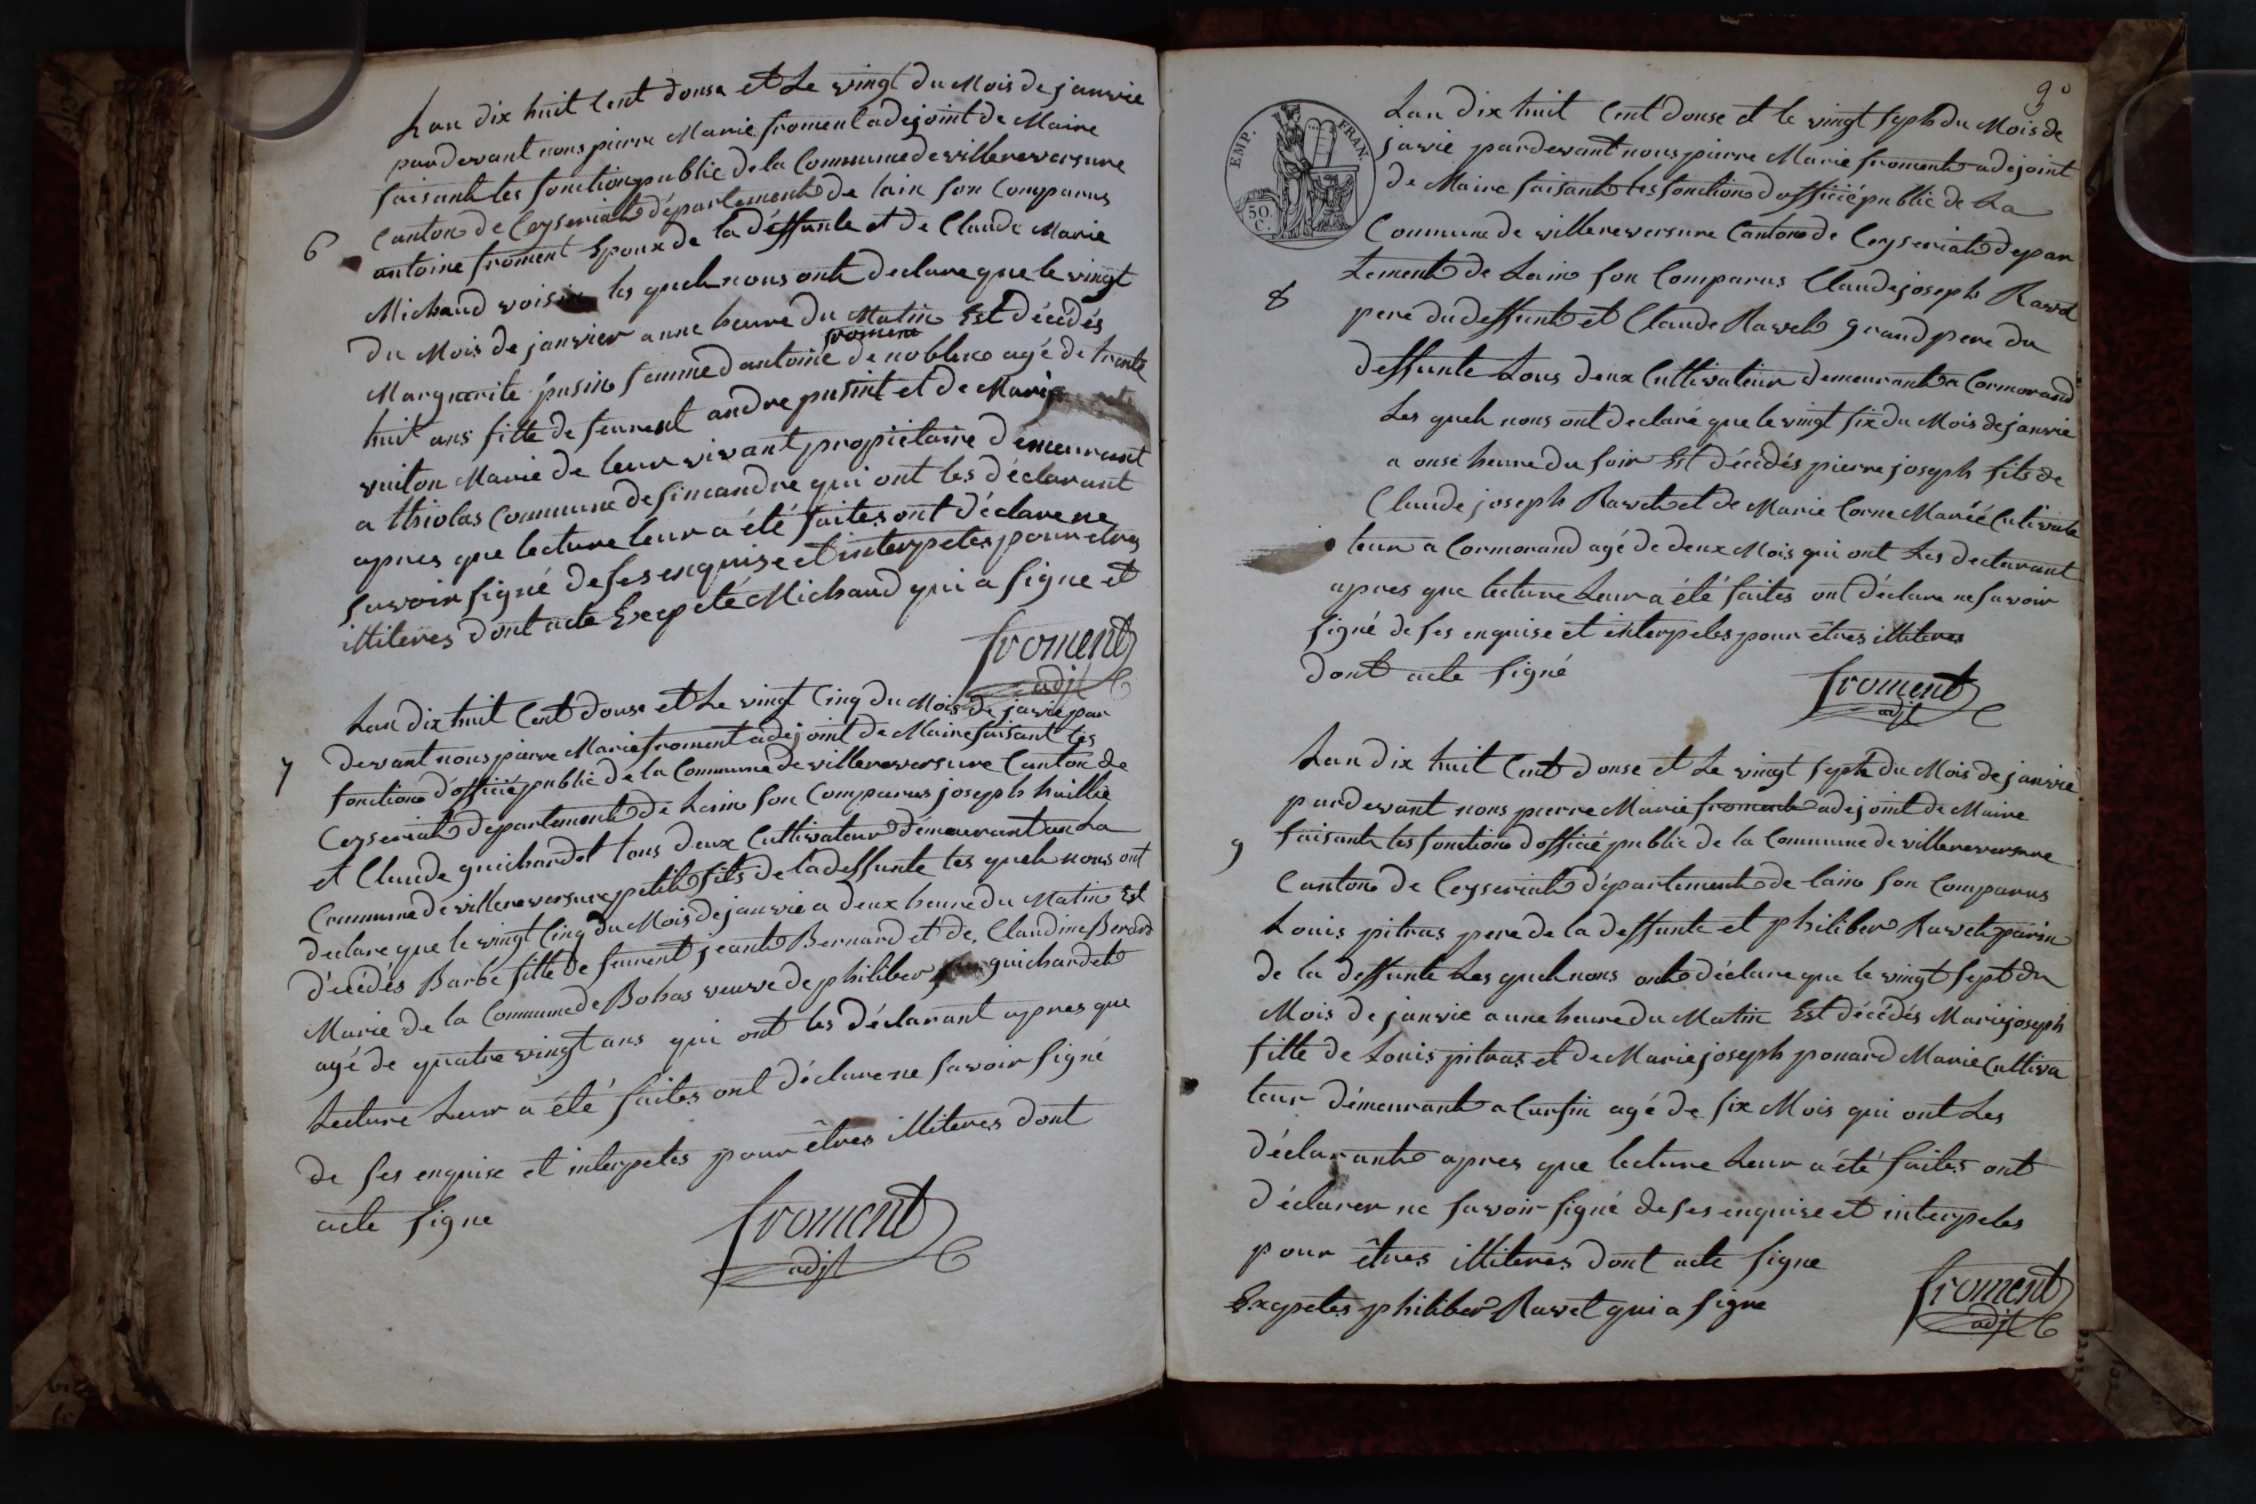 Lan dix huit Cent douse et Le vingt du Mois de janvie
par devant nous pierre Marie froment adejoint de Maire
faisant les fonction public de la Commune de villereversure
Canton de Ceyseriat département de lain son Comparus
6
antoine froment Epoux de la déffunte et de Claude Marie
Michaud voisin les quels nous ont declare que le vingt
du Mois de janvier a une heure du Matin Est décédés
froment
Marguerite pusin femme dantoine de noblens agé de trente
huit ans fille de feurent andre pusint et de Marie
vuiton Marie de leur vivant propiétaire demeurant
a thiolas Commune de simandre qui ont les déclarant
apres que lecture leur a été faites ont déclare ne
savoir signé de ses enquise et interpeles pour etres
illiteres dont acte Exepeté Michaud qui a signe et
froment
adjt
Lan dix huit Cent douse et Le vingt Cinq du Mois de javie par
devant nous pierre Marie froment adejoint de Maire faisant les
7
fonction d'officié public de la Commune de villereversure Canton de
Ceyseriat departement de Lain son Comparus joseph huillié
et Claude guichardet tous deux Cultivateur démeurant en La
Commune de villereversure petit fils de la deffunte les quels nous ont
declare que le vingt Cinq du Mois de janvie a deux heure du Matin Est
décédés Barbe fille de feurent jeant Bernard et de Claudine Berard
Marie de la Commune de Bohas veuve de philiber guichardet
agé de quatre vingt ans qui ont les déclarant apres que
Lecture Leur a été faites ont déclare ne savoir signé
de ses enquise et interpetes pour êtres illiteres dont
acte signe
froment
adjt
9
EMP. FRAN.
50.
C.
Lan dix huit Cent douse et le vingt septh du Mois de
javie pardevant nous pierre Marie froment adejoint
de Maire faisant les fonction d officié public de La
Commune de villereversure Canton de Ceyseriat depar
8
tement de Lain son Comparus Claude joseph Ravet
pere du deffunt et Claude Ravet grand pere du
deffunte tous deux Cultivateur demeurant a Cormorand
Les quels nous ont declaré que le vingt six du Mois de janvie
a onse heure du soir Est décédés pierre joseph fils de
Claude joseph Ravet et de Marie Corne Mariéé Cultiva
teur a Cormorand agé de deux Mois qui ont Les declarant
apres que lecture Leur a été faites ont déclare ne savoir
signé de ses enquise et interpeles pour êtres illiteres
dont acte signé
froment
adjt
Lan dix huit Cent douse et Le vingt septh du Mois de janvie
pardevant nous pierre Marie froment adejoint de Maire
9
faisant les fonction d officié public de la Commune de villereversure
Canton de Ceyseriat département de lain son Comparus
Louis pitras pere de la deffunte et philiber Ravet parin
de la deffunte Les quels nous ont déclare que le vingt sept du
Mois de janvie a une heure du Matin Est décédés Marie joseph
fille de Louis pitras et de Marie joseph ponard Marie Cultiva
teur démeurant a Cursin agé de six Mois qui ont Les
déclarant apres que lecture Leur a été faites ont
déclarer ne savoir signé de ses enquise et interpeles
pour êtres illiteres dont acte signe
Exepetes philiber Ravet qui a signe
froment
adjt